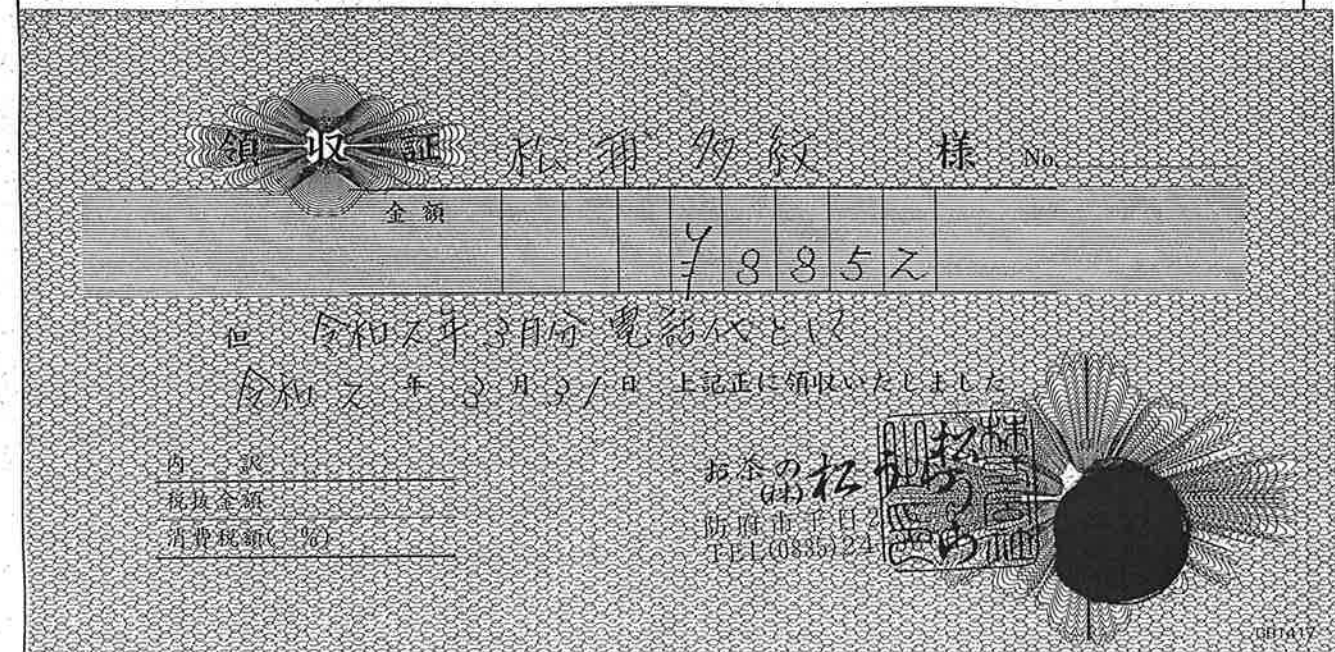 領収証 松浦多紋 様 No.
金額 ¥8852
但 令和元年3月分 電話代として
令和元年3月31日 上記正に領収いたしました
内訳
税抜金額
消費税額( %)
お茶の
防府市
TEL(0835)24
GB1417